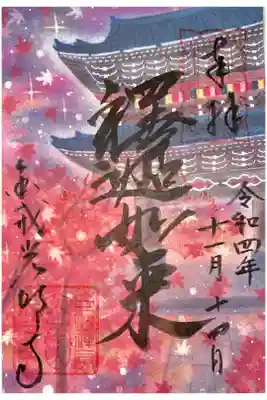 奉拝
令和四年
十一月十四日
釋迦如来
金戒光明寺